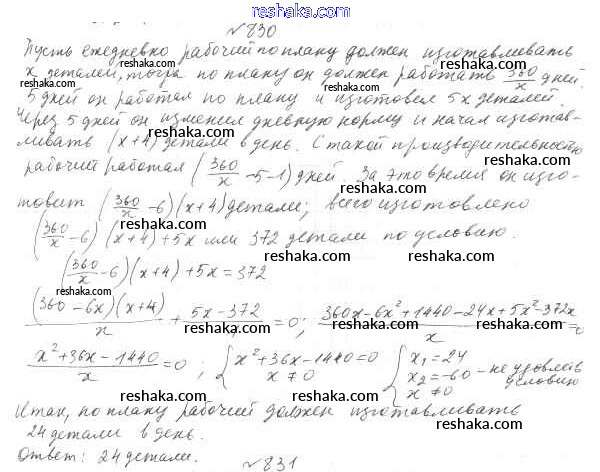 reshaka.com
№ 830
Пусть ежедневно рабочий по плану должен изготавливать
x деталей, тогда по плану он должен работать 360/x дней.
5 дней он работал по плану и изготовил 5x деталей.
Через 5 дней он изменил дневную норму и начал изготав-
ливать (x+4) детали в день. С такой производительностью
рабочий работал (360/x - 5 - 1) дней. За это время он изго-
товит (360/x - 6)(x+4) детали; всего изготовлено
(360/x - 6)(x+4) + 5x или 372 детали по условию.
(360/x - 6)(x+4) + 5x = 372
(360 - 6x)(x+4)/x + 5x - 372/ = 0; 360x - 6x² + 1440 - 24x + 5x² - 372x/x = 0
x² + 36x - 1440/x = 0; { x² + 36x - 1440 = 0 x ≠ 0 { x₁ = 24 x₂ = -60 - не удовлетв условию x ≠ 0
Итак, по плану рабочий должен изготавливать
24 детали в день.
Ответ: 24 детали.
№ 831
reshaka.com